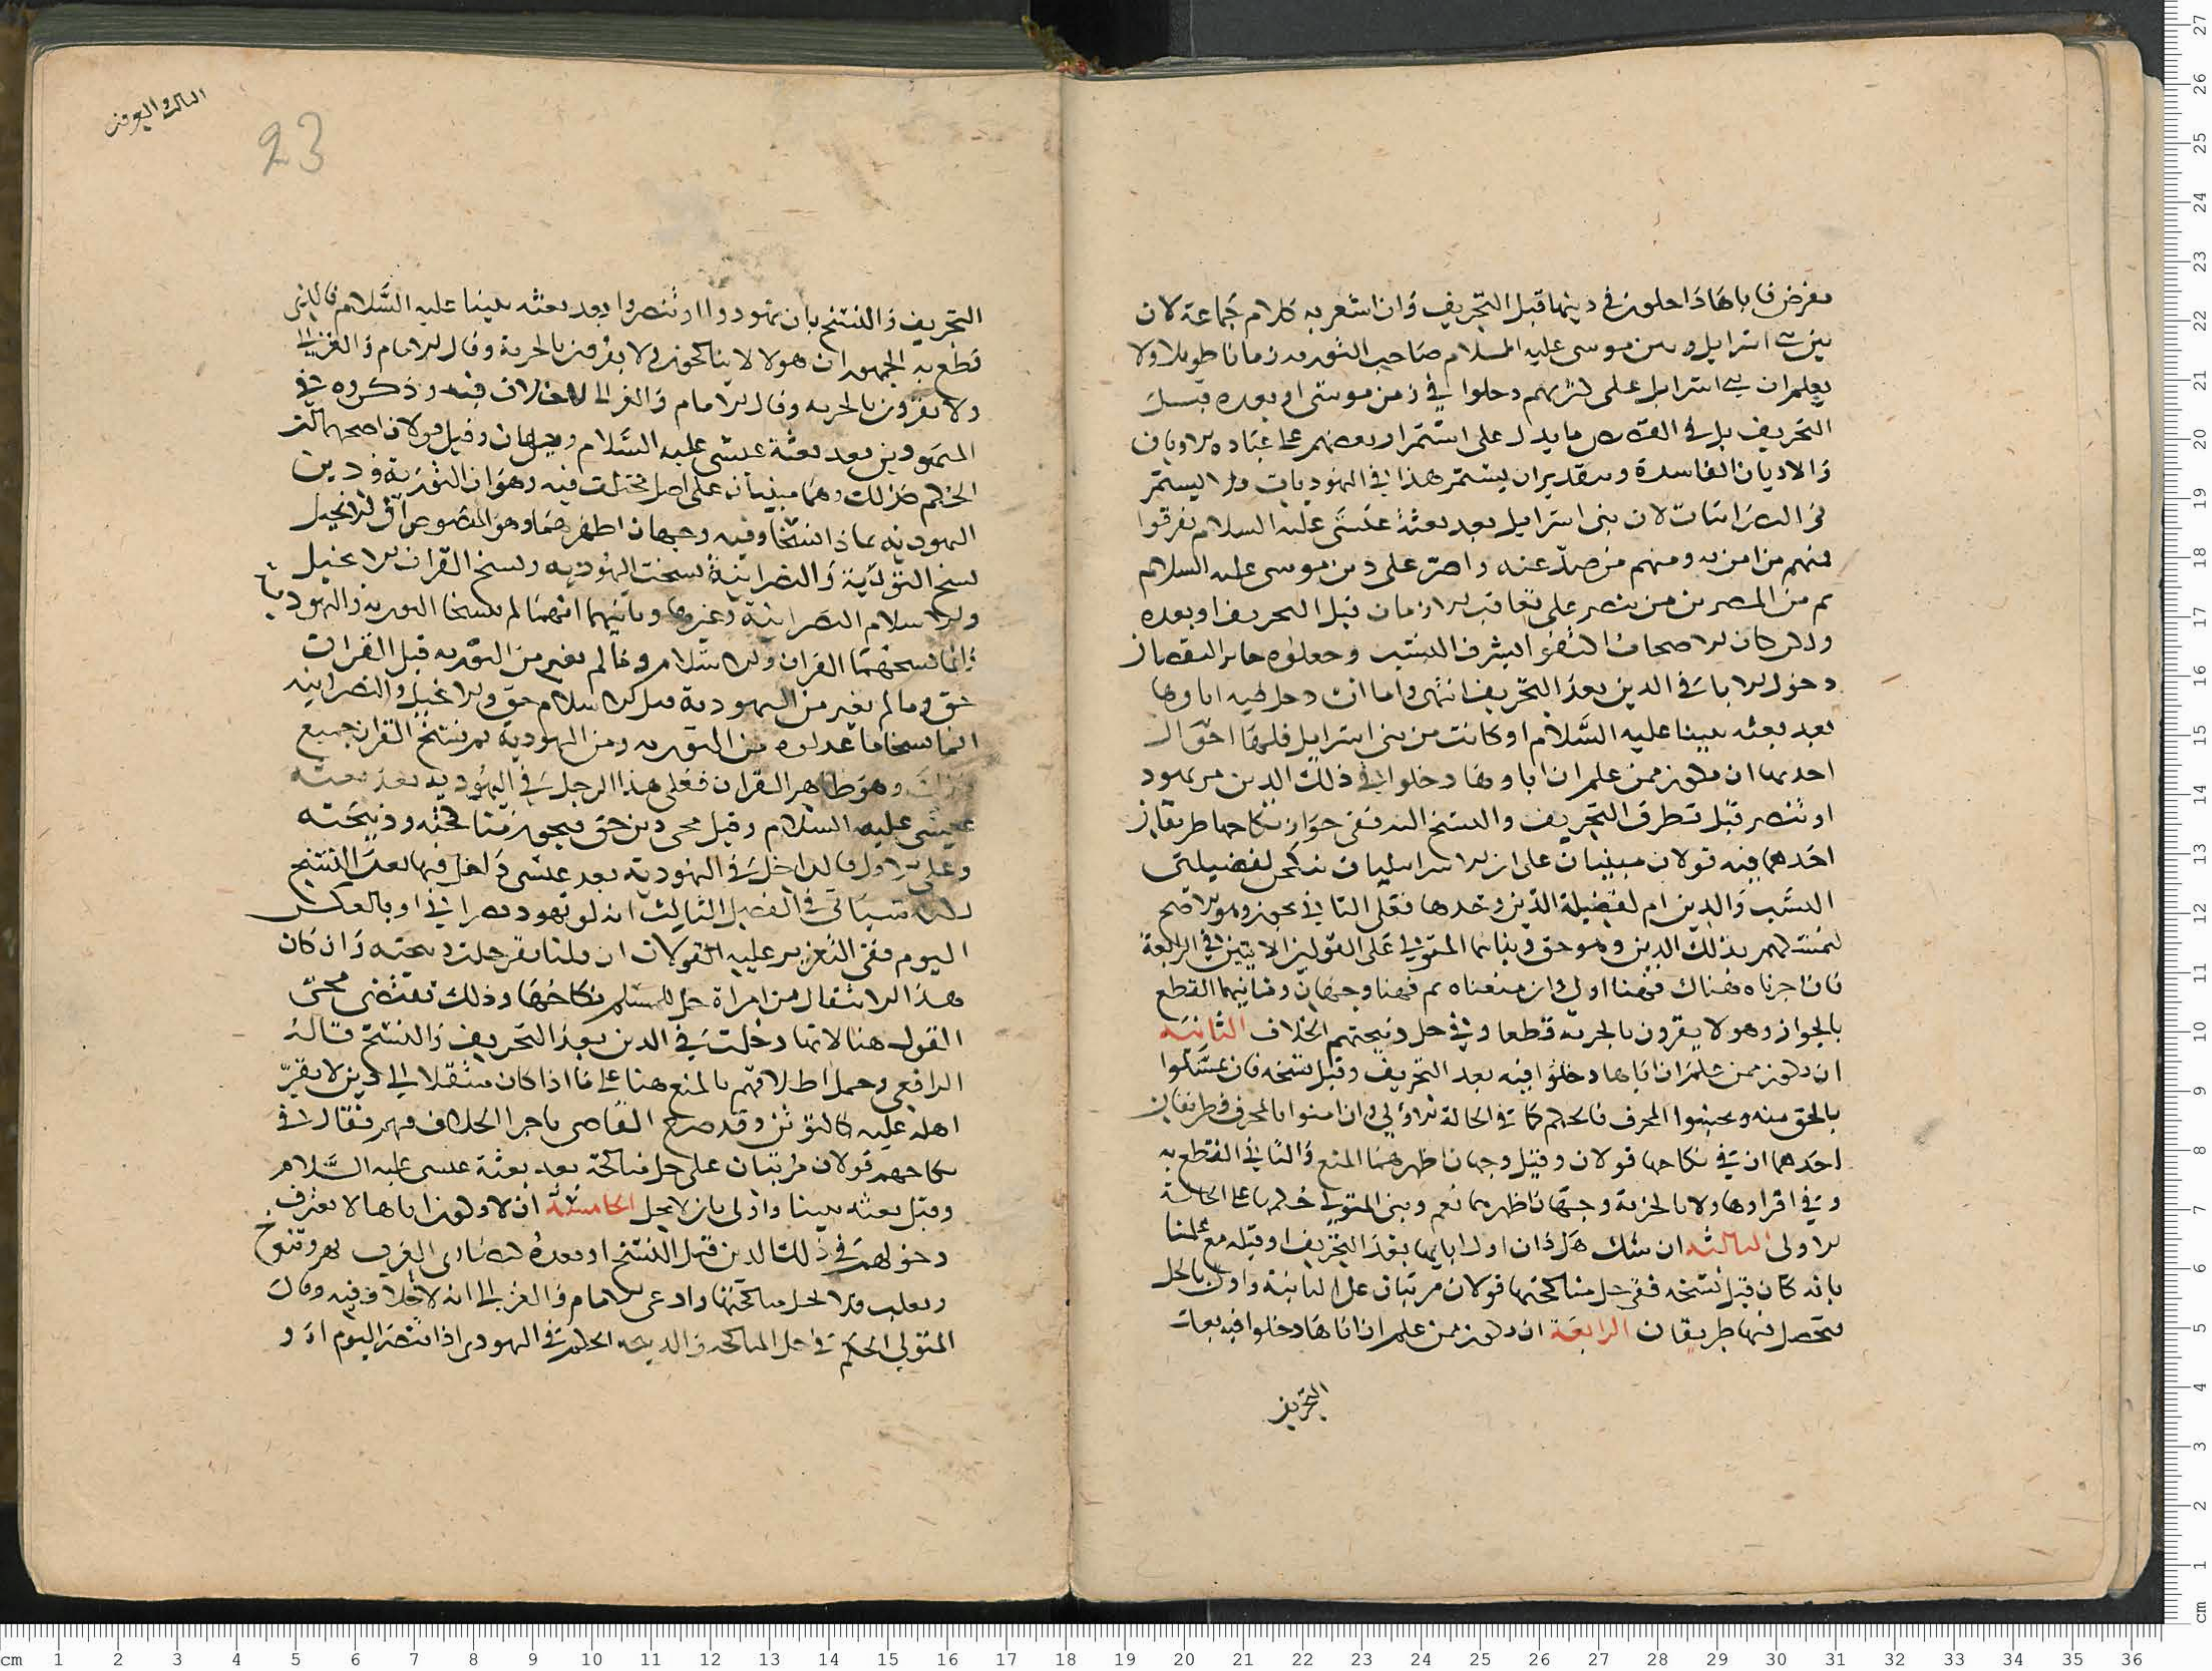 بفرض اباها داخلون في دينها قبل التحريف وان اشعر به كلام جماعة لان
بين اسرائيل وبين موسى عليه السلام صاحب التورية زمانا طويلا ولا
يعلم ان بني اسرايل على كثرتهم دخلوا في زمن موسى او بعده قبل
التحريف بل في القصص ما يدل على استمرار بعضهم على عبادة الاوثان
والاديان الفاسدة وبتقدير ان يستمر هذا في اليهوديات فلا يستمر
في النصرانيات لان بني اسرايل بعد بعثة عيسى عليه السلام تفرقوا
فمنهم من امن به ومنهم من صد عنه واصر على دين موسى عليه السلام
ثم من المصرين من تنصر على تعاقب الازمان قبل التحريف او بعده
ولكن كان الاصحاب اكتفوا بشرف النسب وجعلوه جابرا لنقصان
دخول الاباء في الدين بعد التحريف انتهى واما ان دخل فيه اباوها
بعد بعثة نبينا عليه السلام او كانت من بني اسرايل فلها احوال
احدها ان تكون ممن علم ان اباوها دخلوا في ذلك الدين من تهود
او تنصر قبل تطرق التحريف والنسخ اليه ففي جواز نكاحها طريقان
احدهما فيه قولان مبنيان على ان الاسرائيليات ينكحن لفضيلتي
النسب والدين ام لفضيلة الدين وحدها فعلى الثاني يجوز وهو الاصح
لتمسكهم بذلك الدين وهو حق وبناهما المتولي على القولين الاتيين في الرابعة
فان اجزناه هناك فهنا اولى وان منعناه ثم فهنا وجهان وثانيهما القطع
بالجواز وهولا يقرون بالجزية قطعا وفي حل ذبيحتهم الخلاف الثانية
ان تكون ممن علم ان اباها دخلوا فيه بعد التحريف وقبل نسخه فان تمسكوا
بالحق منه وتجنبوا المحرف فالحكم كما في الحالة الاولى وان امنوا بالمحرف فطريقان
احدهما ان في نكاحها قولان وقيل وجهان اظهرهما المنع والثاني القطع به
وفي اقرارها ولا بالجزية وجهان اظهرهما نعم وبنى المتولي حكمها على الحالة
الاولى الثالثة ان شك هل دان اول ابايها بعد التحريف او قبله مع علمنا
بانه كان قبل نسخه ففي حل مناكحتها قولان مرتبان على الثانية واولى بالحل
يتحصل فيها طريقان الرابعة ان تكون ممن علم ان اباها دخلوا فيه بعد
التحريف
الثالث والعرفن
23
التحريف والنسخ بان تهودوا او تنصروا بعد بعثة نبينا عليه السلام فالذي
قطع به الجمهور ان هولا لا يناكحون ولا يقرون بالجزية وقال الامام والغزالي
ولا يقرون بالجزية وقال الامام والغزالي لا خلاف فيه وذكروه في
المتهودين بعد بعثة عيسى عليه السلام وجهان وقيل قولان اصحهما ان
الحكم كذلك وهما مبنيان على اصل مختلف فيه وهو ان التورية ودين
اليهودية بماذا انتسخا وفيه وجهان اظهرهما وهو المنصوص ان الانجيل
نسخ التورية والنصرانية نسخت اليهودية ونسخ القران الانجيل
والاسلام النصرانية وغيرها وثانيهما انهما لم ينسخا التورية واليهودية
وانما نسخهما القران والاسلام وما لم يغير من التورية قبل القران
حق وما لم يغير من اليهودية قبل الاسلام حق والانجيل والنصرانية
انما نسخا ما عدلوه من التورية ومن اليهودية ثم نسخ القران جميع
ذلك وهو ظاهر القران فعلى هذا الرجل في اليهودية بعد بعثة
عيسى عليه السلام وقبل محمد دين حق فيجوز مناكحته وذبيحته
وعلى الاول فالداخل في اليهودية بعد عيسى داخل فيها بعد النسخ
لكن سياتي في الفصل الثالث انه لو تهود نصراني او بالعكس
اليوم ففي التقرير عليه القولان ان قلنا نقر حلت ذبيحته وان كان
هذا الانتقال من امراة حل للمسلم نكاحها وذلك يقتضي مجي
القول هنا لانها دخلت في الدين بعد التحريف والنسخ قاله
الرافعي وحمل اطلاقهم بالمنع هنا على ما اذا كان منتقلا الى دين لا يقر
اهله عليه كالتوثن وقد صرح القاضي باجرا الخلاف فيهم فقال في
نكاحهم قولان مرتبان على حل مناكحة بعد بعثة عيسى عليه السلام
وقبل بعثة نبينا واولى بان لا يحل الخامسة ان لا تكون اباها لا يعرف
دخولهم في ذلك الدين قبل النسخ او بعده كنصارى العرب بهرو تنوخ
وتغلب فلا تحل مناكحتها وادعى الامام والغزالي انه لا خلاف فيه وقال
المتولي الحكم في حل المناكحة والذبيحة الحكم في اليهودي اذا تنصر اليوم او